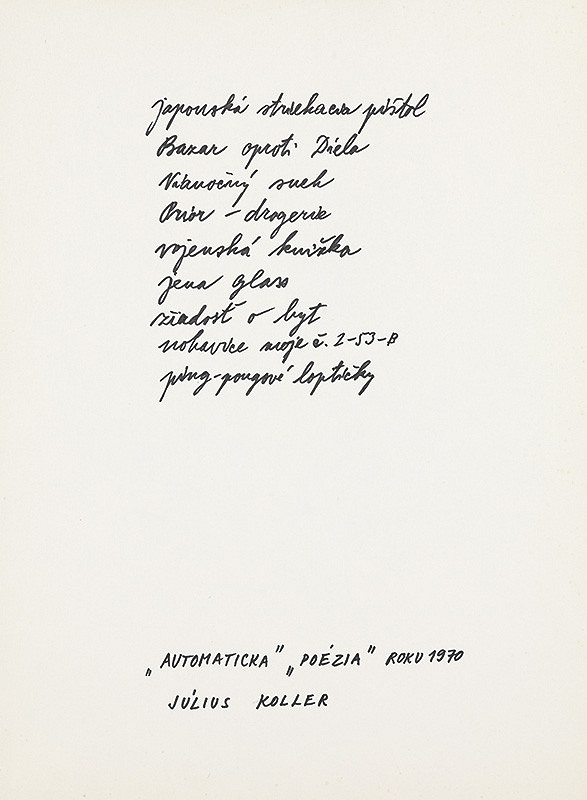 japonská striekacia pištol
Bazar oproti Diela
Vianočný
Prior – drogerie
vojenská knižka
jena glass
žiadosť o byt
nohavice moje č. 2-53-B
ping-pongové loptičky
„AUTOMATICKA" „POÉZIA" ROKU 1970
JÚLIUS KOLLER